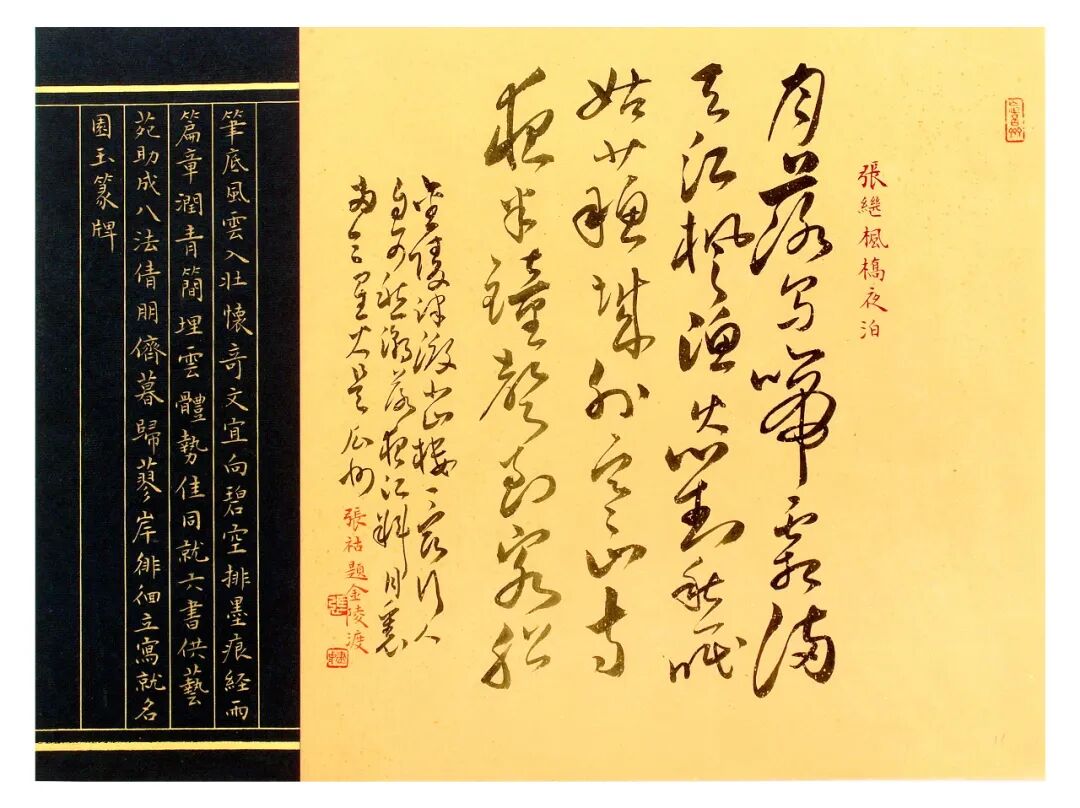 張繼楓橋夜泊
月落烏啼霜滿
天江楓漁火對愁眠
姑蘇城外寒山寺
夜半鐘聲到客船
金陵津渡小山樓一宿行人
自可愁潮落夜江斜月裏
兩三星火是瓜州
張祜題金陵渡
筆底風雲入壯懷奇文宜向碧空排墨痕經雨
篇章潤青簡埋雲體勢佳同就六書供藝
苑助成八法倩朋儕暮歸蓼岸徘徊立寫就名
園玉篆牌